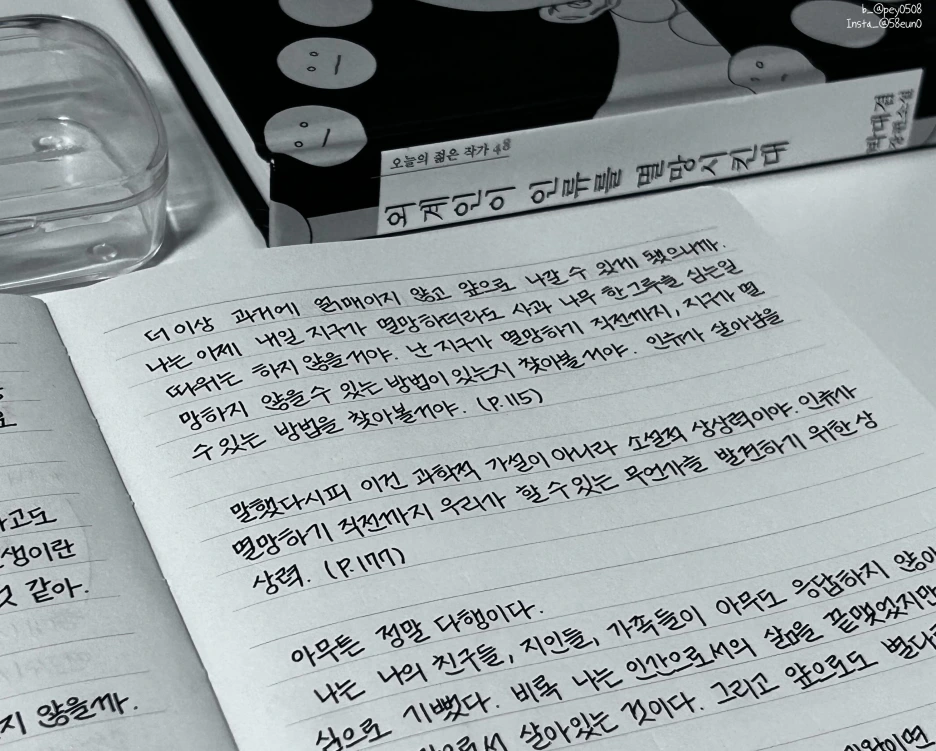 b_@pey0508
Insta_@58eun0
오늘의 젊은 작가 48
외계인이 인류를 멸망시킨대
박대겸
장편소설
더이상 과거에 얽매이지 않고 앞으로 나갈 수 있게 됐으니까.
나는 이제 내일 지구가 멸망하더라도 사과 나무 한그루를 심는일
따위는 하지 않을거야. 난 지구가 멸망하기 직전까지, 지구가 멸
망하지 않을수 있는 방법이 있는지 찾아볼거야. 인류가 살아남을
수 있는 방법을 찾아볼거야. (P.115)
말했다시피 이건 과학적 가설이 아니라 소설적 상상력이야. 인류가
멸망하기 직전까지 우리가 할 수 있는 무언가를 발견하기 위한 상
상력. (P.177)
아무튼 정말 다행이다.
나는 나의 친구들, 지인들, 가족들이 아무도 응답하지 않아
기뻤다. 비록 나는 인간으로서의 삶을 끝맺었지만
살아있는 것이다. 그리고 앞으로도
고도
생이란
같아.
않을까.